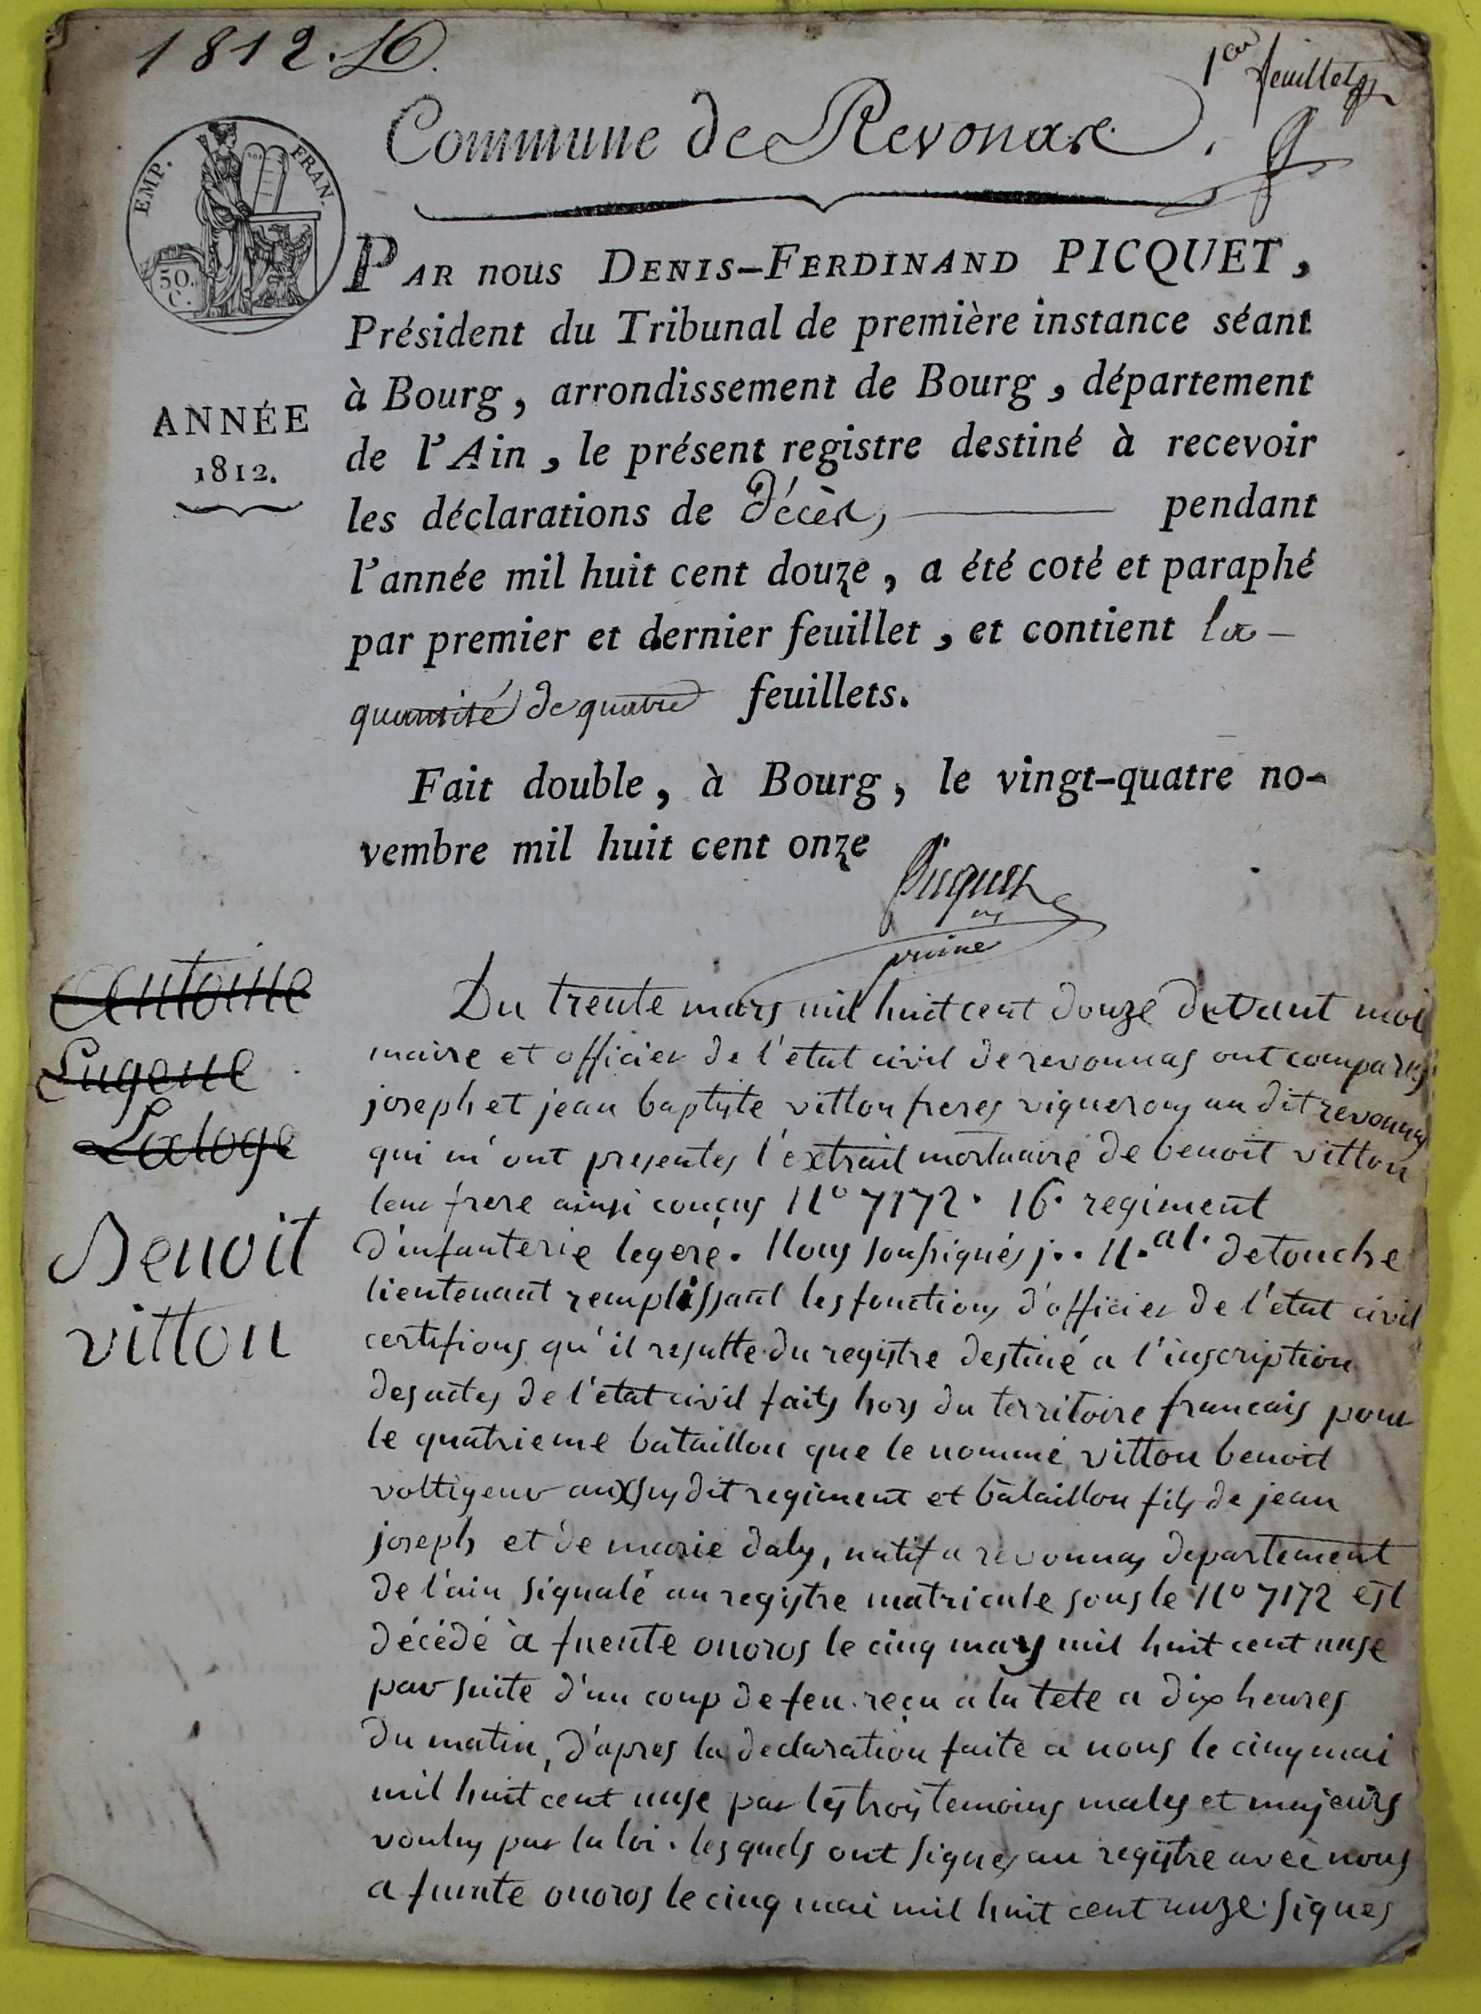 1812. D.
1er feuillet
Commune de Revonas.
EMP. FRAN.
50.
C.
PAR nous DENIS-FERDINAND PICQUET,
Président du Tribunal de première instance séant
à Bourg, arrondissement de Bourg, département
de l'Ain, le présent registre destiné à recevoir
les déclarations de Décès, pendant
l'année mil huit cent douze, a été coté et paraphé
par premier et dernier feuillet, et contient la
quantité de quatre feuillets.
ANNÉE
1812.
Fait double, à Bourg, le vingt-quatre no-
vembre mil huit cent onze
Picquet
Antoine
Eugene
Laloge
Benoit
vitton
Du trente mars mil huit cent douze devant moi
maire et officier de l'état civil de revonnas ont comparus
joseph et jean baptiste vitton freres vignerons au dit revonnas
qui m'ont presentes l'extrait mortuaire de benoit vitton
leur frere ainsi conçus No 7172. 16e regiment
d'infanterie legere. Nous soussignés j.. N.al. detouche
lieutenant remplissant les fonctions d'officier de l'état civil
certifions qu'il resulte du registre destiné a l'inscription
des actes de l'état civil faits hors du territoire francais pour
le quatrieme bataillon que le nommé vitton benoit
voltigeur aux susdit regiment et bataillon fils de jean
joseph et de marie daly, natif a revonnas departement
de l'ain signalé au registre matricule sous le No 7172 est
décédé à fuente onoros le cinq mars mil huit cent onse
par suite d'un coup de feu reçu a la tete a dix heures
du matin, d'apres la declaration faite a nous le cinq mai
mil huit cent onse par les trois temoins males et majeurs
voulus par la loi. lesquels ont signes au registre avec nous
a fuente onoros le cinq mai mil huit cent onze. signes